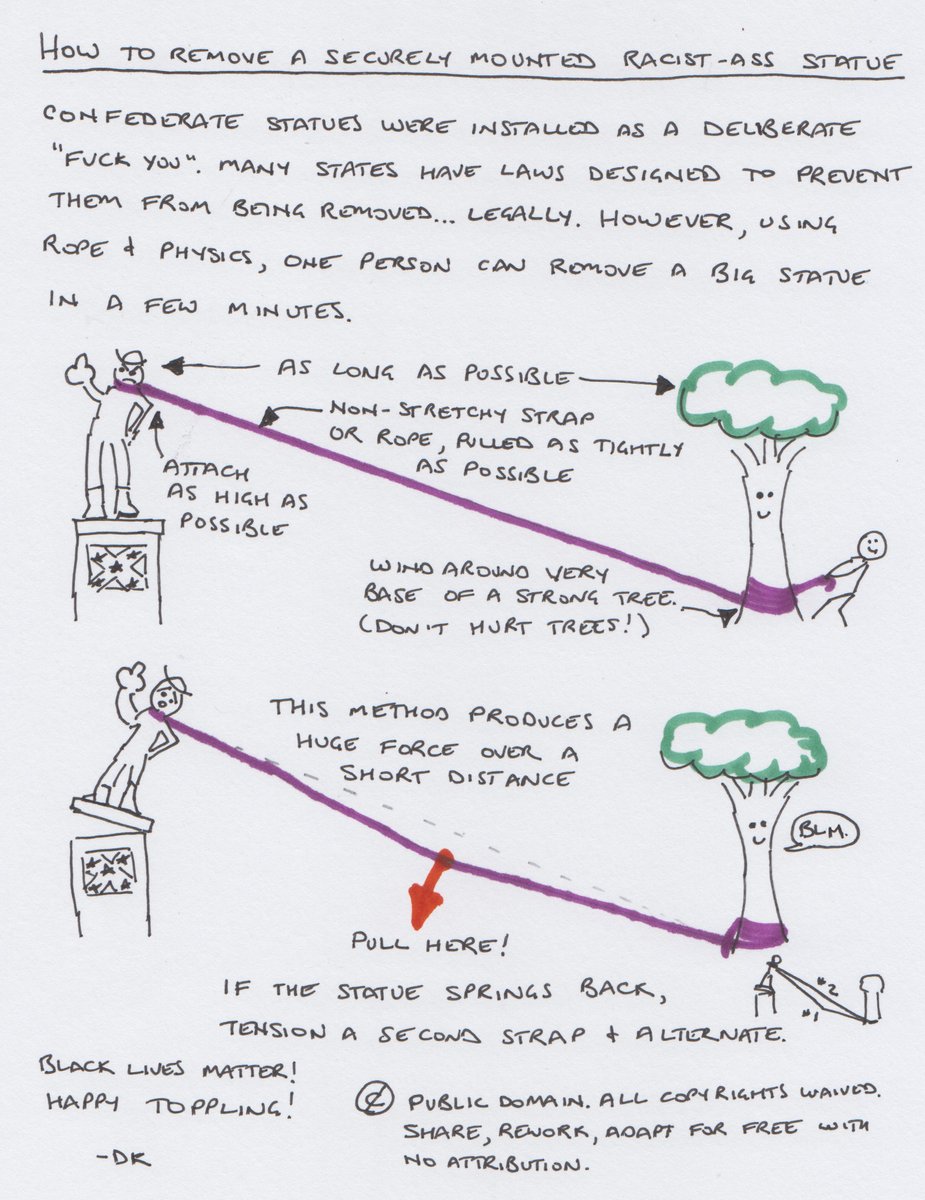 HOW TO REMOVE A SECURELY MOUNTED RACIST-ASS STATUE
CONFEDERATE STATUES WERE INSTALLED AS A DELIBERATE
"FUCK YOU". MANY STATES HAVE LAWS DESIGNED TO PREVENT
THEM FROM BEING REMOVED... LEGALLY. HOWEVER, USING
ROPE & PHYSICS, ONE PERSON CAN REMOVE A BIG STATUE
IN A FEW MINUTES.
AS LONG AS POSSIBLE
NON-STRETCHY STRAP
OR ROPE, PULLED AS TIGHTLY
AS POSSIBLE
ATTACH
AS HIGH AS
POSSIBLE
WIND AROUND VERY
BASE OF A STRONG TREE.
(DON'T HURT TREES!)
THIS METHOD PRODUCES A
HUGE FORCE OVER A
SHORT DISTANCE
BLM.
PULL HERE!
IF THE STATUE SPRINGS BACK,
TENSION A SECOND STRAP & ALTERNATE.
#2
#1
BLACK LIVES MATTER!
HAPPY TOPPLING!
-DK
PUBLIC DOMAIN. ALL COPYRIGHTS WAIVED.
SHARE, REWORK, ADAPT FOR FREE WITH
NO ATTRIBUTION.